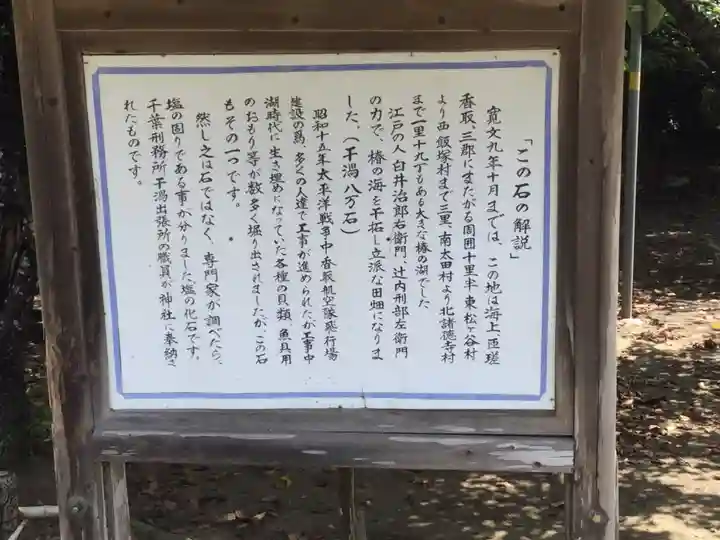 「この石の解説」
寛文九年十月までは、この地は海上、匝瑳
香取、三郡にまたがる周囲十里半、東松ヶ谷村
より西飯塚村まで三里、南太田村より北諸徳寺村
まで一里十九丁もある大きな椿の湖でした
江戸の人白井治郎右衛門、辻内刑部左衛門
の力で、椿の海を干拓し立派な田畑になりま
した。(干潟八万石)
昭和十五年太平洋戦争中香取航空隊飛行場
建設の為、多くの人達で工事が進められたが工事中
湖時代に生き埋めになっていた各種の貝類、魚具用
のおもり等が数多く掘り出されましたが、この石
もその一つです。
然し之は石ではなく、専門家が調べたら、
塩の固りである事が分りました塩の化石です。
千葉刑務所干潟出張所の職員が神社に奉納さ
れたものです。